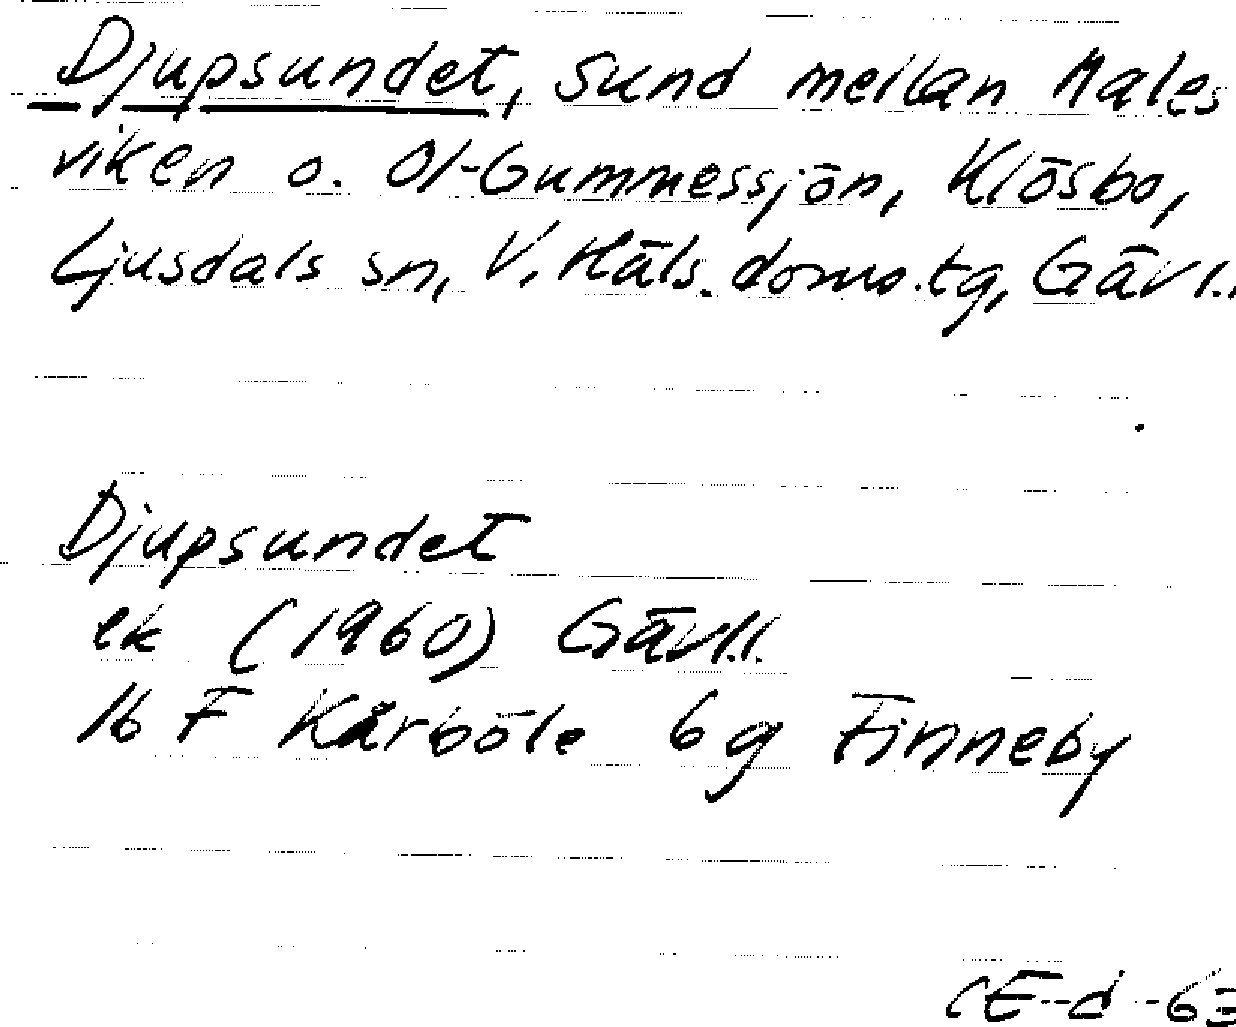 Djupsundet, sund mellan Males
viken o. Ol-Gummessjön, Klösbo,
Ljusdals sn, V. Häls. doms.tg, Gävl.
Djupsundet
ek (1960) Gävl.l.
16 F Kårböle 6 g Finneby
CE-d -63